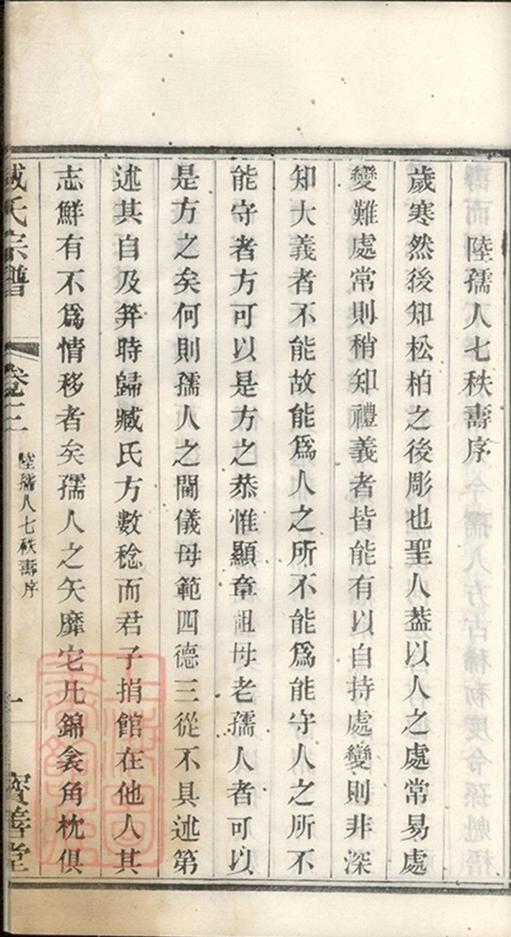 陸孺人七秩壽序
歲寒然後知松柏之後彫也聖人葢以人之處常易處
變難處常則稍知禮義者皆能有以自持處變則非深
知大義者不能故能爲人之所不能爲能守人之所不
能守者方可以是方之恭惟顯章祖母老孺人者可以
是方之矣何則孺人之閫儀母範四德三從不具述第
述其自及笄時歸臧氏方數稔而君子捐館在他人其
志鮮有不爲情移者矣孺人之矢靡它凡錦衾角枕俱
臧氏宗譜 卷三 陸孺人七秩壽序 一 寳善堂